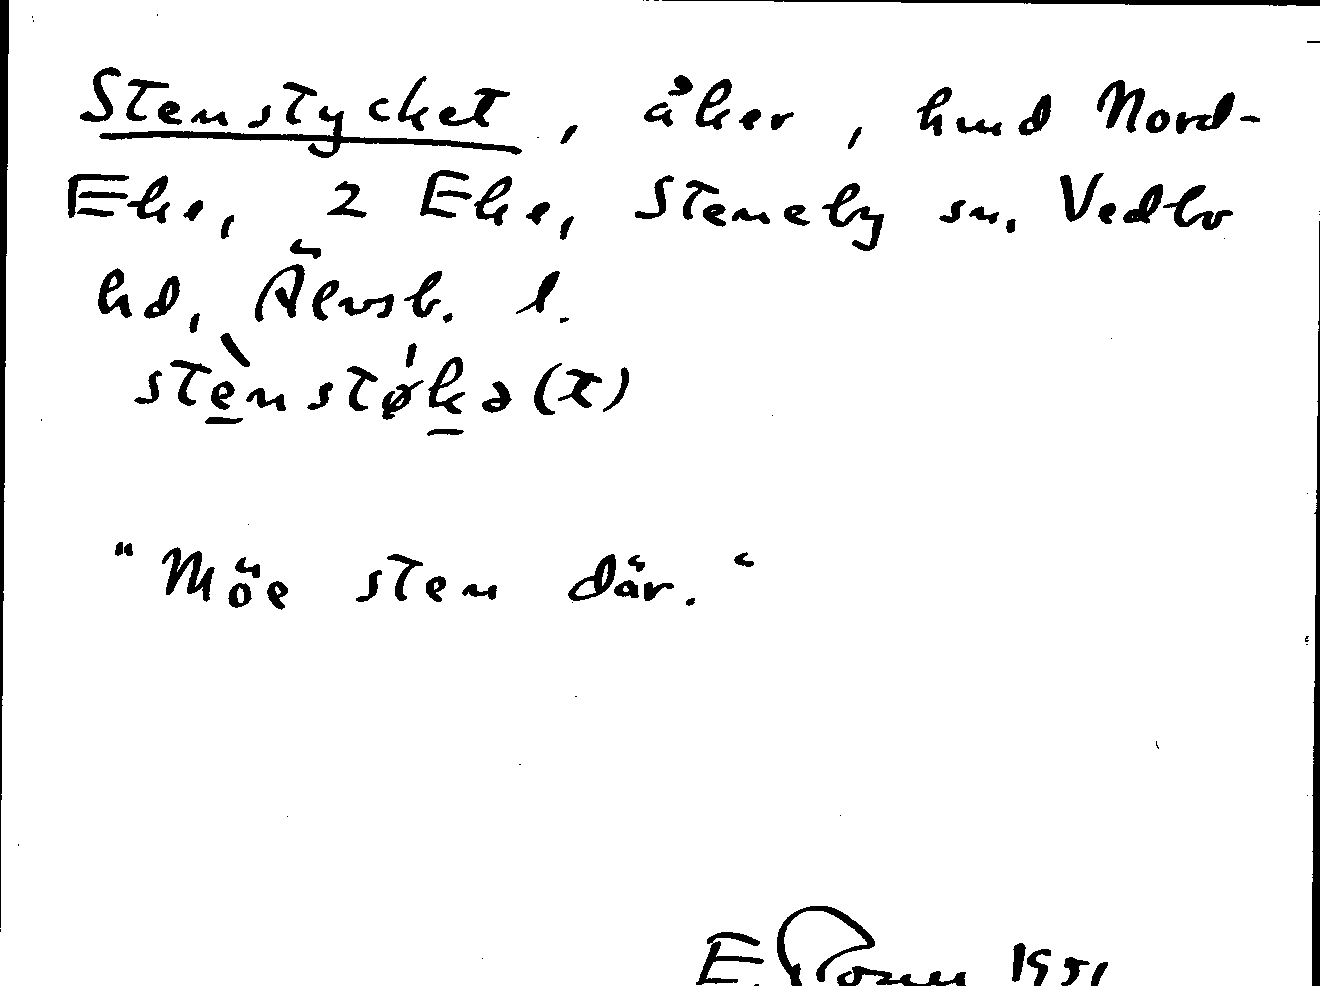 Stenstycket, åker, hmd Nord-
Eke, 2 Eke, Steneby sn. Vedbo
hd, Älvsb. l.
stè̱nstǿḵə(t)
"Möe sten där."
E. Rosun 1951